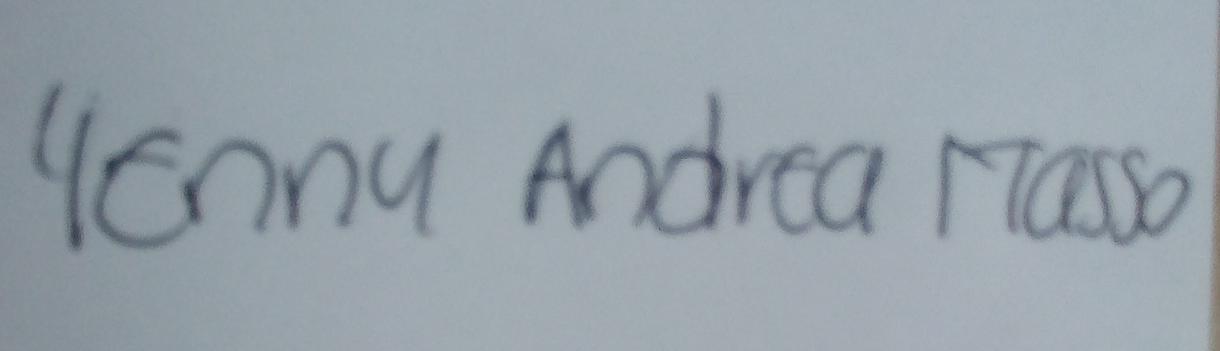 Yenny Andrea Masso